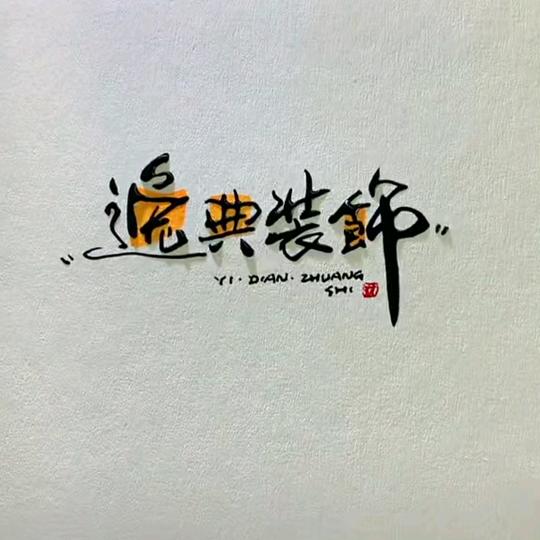 "逸典装饰"
YI·DIAN·ZHUANG
SHI